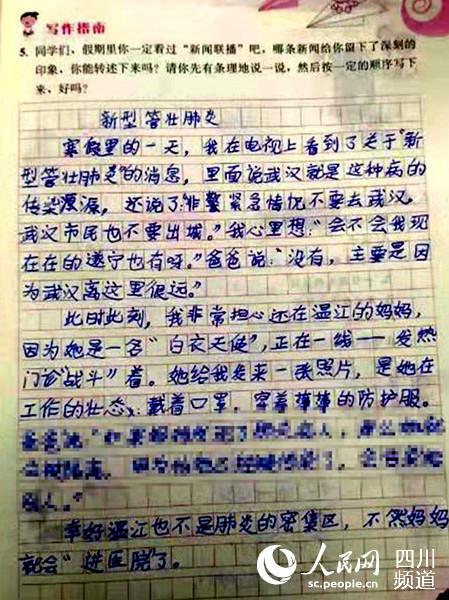 写作指南
5. 同学们，假期里你一定看过“新闻联播”吧，哪条新闻给你留下了深刻的
印象，你能转述下来吗？请你先有条理地说一说，然后按一定的顺序写下
来，好吗？
新型管壮肺炎
寒假里的一天，我在电视上看到了关于“新
型管壮肺炎”的消息，里面说武汉就是这种病的
传染源，还说了：“非警紧急情况不要去武汉，
武汉市民也不要出城。”我心里想：“会不会我现
在在的遂宁也有呀。”爸爸说：“没有，主要是因
为武汉离这里很远。”
此时此刻，我非常担心还在温江的妈妈，
因为她是一名“白衣天使”，正在一线——发热
门诊“战斗”着。她给我发来一张照片，是她在
工作的壮态：戴着口罩，穿着薄薄的防护服。
幸好温江也不是肺炎的密集区，不然妈妈
就会“进医院”了。
人民网 四川
sc.people.cn 频道